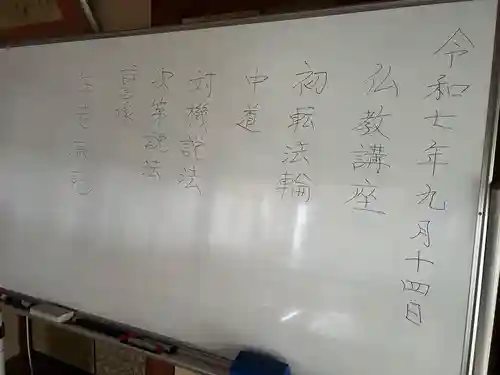 令和七年九月十四日
仏教講座
初転法輪
中道
対機説法
次第説法